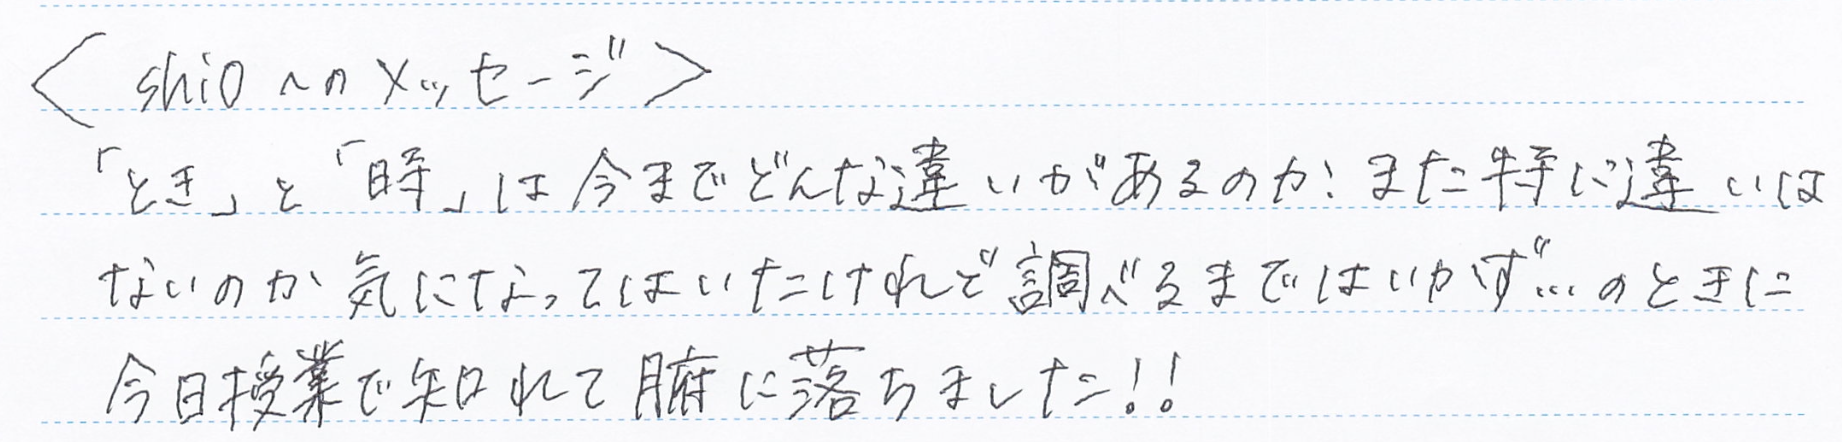 <shioへのメッセージ>
「とき」と「時」は今までどんな違いがあるのか、また特に違いは
ないのか気になってはいたけれど調べるまではいかず…のときに
今日授業で知れて腑に落ちました!!